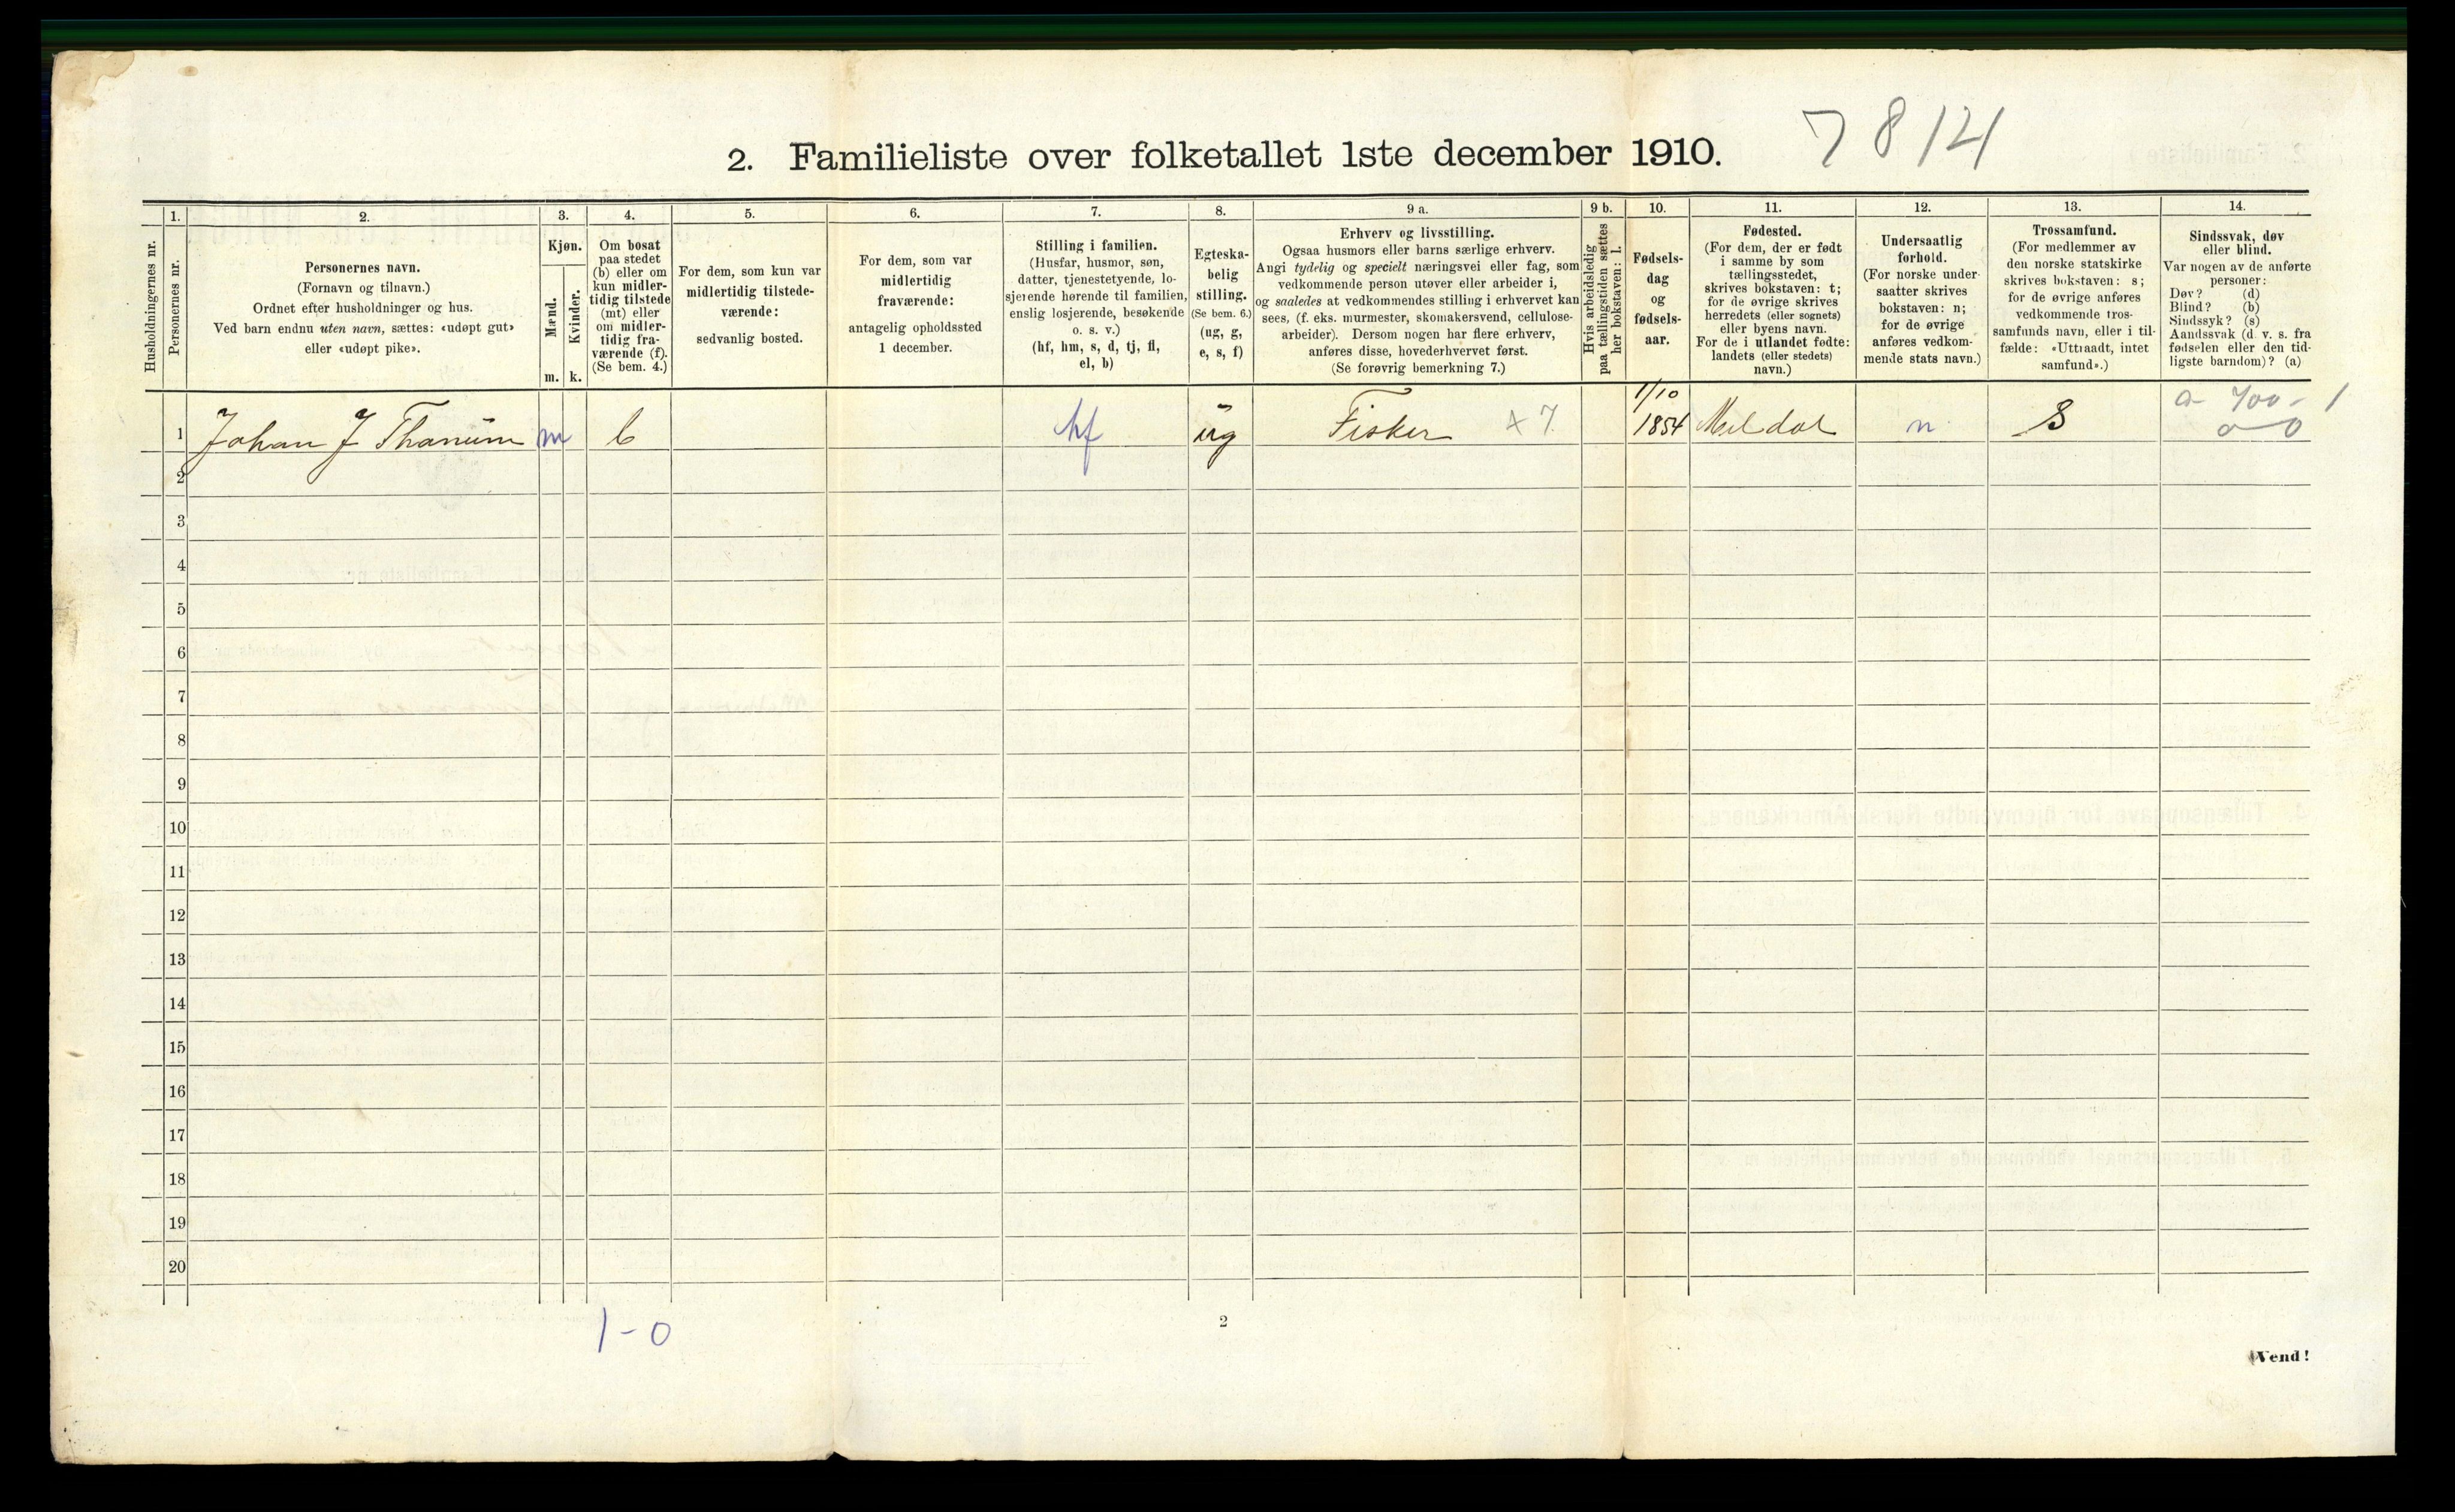 2. Familieliste over folketallet 1ste december 1910.
7814
Husholdningernes nr.
1.
Personernes nr.
2.
Personernes navn.
(Fornavn og tilnavn.)
Ordnet efter husholdninger og hus.
Ved barn endnu uten navn, sættes: «udøpt gut»
eller «udøpt pike».
3.
Kjøn.
Mænd.
Kvinder.
m. k.
4.
Om bosat
paa stedet
(b) eller om
kun midler-
tidig tilstede
(mt) eller
om midler-
tidig fra-
værende (f).
(Se bem. 4.)
5.
For dem, som kun var
midlertidig tilstede-
værende:
sedvanlig bosted.
6.
For dem, som var
midlertidig
fraværende:
antagelig opholdssted
1 december.
7.
Stilling i familien.
(Husfar, husmor, søn,
datter, tjenestetyende, lo-
sjerende hørende til familien,
enslig losjerende, besøkende
o. s. v.)
(hf, hm, s, d, tj, fl,
el, b)
8.
Egteska-
belig
stilling.
(Se bem. 6.)
(ug, g,
e, s, f)
9 a.
Erhverv og livsstilling.
Ogsaa husmors eller barns særlige erhverv.
Angi tydelig og specielt næringsvei eller fag, som
vedkommende person utøver eller arbeider i,
og saaledes at vedkommendes stilling i erhvervet kan
sees, (f. eks. murmester, skomakersvend, cellulose-
arbeider). Dersom nogen har flere erhverv,
anføres disse, hovederhvervet først.
(Se forøvrig bemerkning 7.)
9 b.
Hvis arbeidsledig
paa tællingstiden sættes
her bokstaven: l.
10.
Fødsels-
dag
og
fødsels-
aar.
11.
Fødested.
(For dem, der er født
i samme by som
tællingsstedet,
skrives bokstaven: t;
for de øvrige skrives
herredets (eller sognets)
eller byens navn.
For de i utlandet fødte:
landets (eller stedets)
navn.)
12.
Undersaatlig
forhold.
(For norske under-
saatter skrives
bokstaven: n;
for de øvrige
anføres vedkom-
mende stats navn.)
13.
Trossamfund.
(For medlemmer av
den norske statskirke
skrives bokstaven: s;
for de øvrige anføres
vedkommende tros-
samfunds navn, eller i til-
fælde: «Uttraadt, intet
samfund».)
14.
Sindssvak, døv
eller blind.
Var nogen av de anførte
personer:
Døv? (d)
Blind? (b)
Sindssyk? (s)
Aandssvak (d. v. s. fra
fødselen eller den tid-
ligste barndom)? (a)
1/10
a- 400- 1
1 Johan J Thanum m b hf ug Fisker 1854 Meldal n S 0 0
2
3
4
5
6
7
8
9
10
11
12
13
14
15
16
17
18
19
20
1-0
2
Vend!